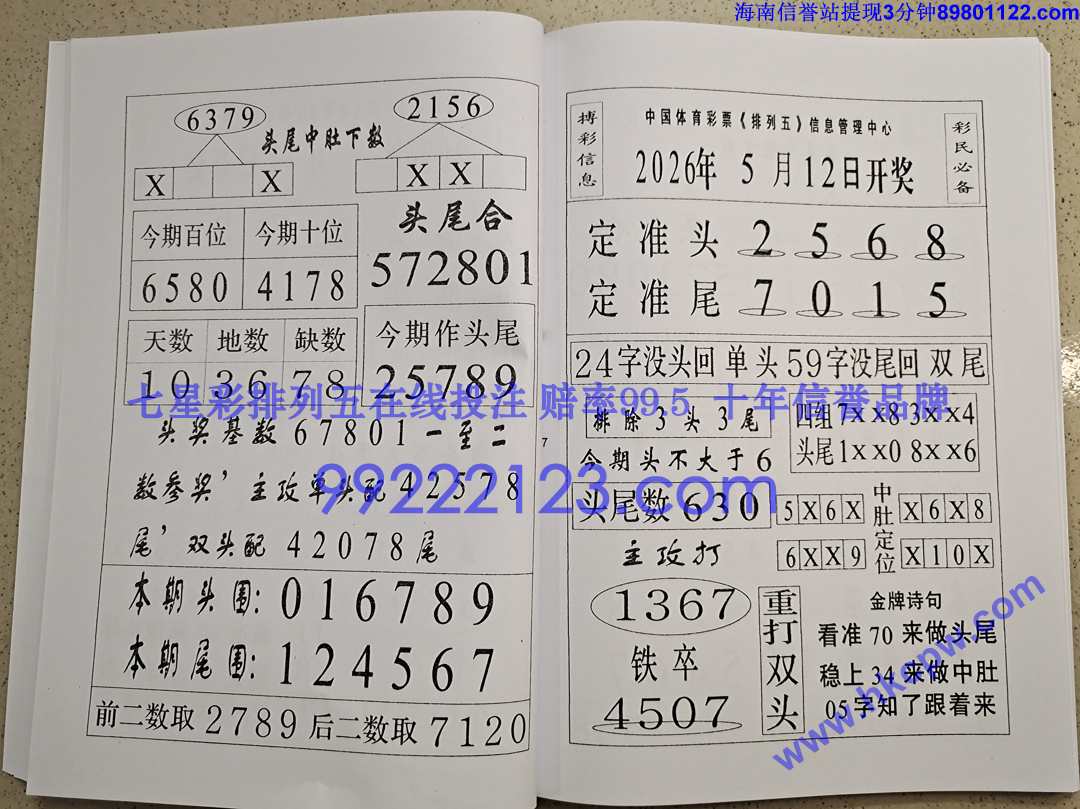 海南信誉站提现3分钟89801122.com
6379
2156
头尾中肚下数
X X
X X
头尾合
572801
今期百位 今期十位
6580 4178
天数 地数 缺数
10 36 78
今期作头尾
25789
头奖基数67801一至二
数参奖’主攻单头配42578
尾’双头配 42078尾
本期头围:016789
本期尾围:124567
前二数取2789后二数取7120
7
搏彩信息
中国体育彩票《排列五》信息管理中心
2026年 5 月12日开奖
彩民必备
定准头 2 5 6 8
定准尾 7 0 1 5
24字没头回 单头 59字没尾回 双尾
排除3头3尾
今期头不大于6
四组 7xx8 3xx4
头尾 1xx0 8xx6
头尾数630
主攻打
5X6X
6XX9
中肚定位
X6X8
X10X
1367
铁卒
4507
重打双头
金牌诗句
看准70来做头尾
稳上34来做中肚
05字知了跟着来
七星彩排列五在线投注 赔率99.5 十年信誉品牌
99222123.com
www.hkspw.com